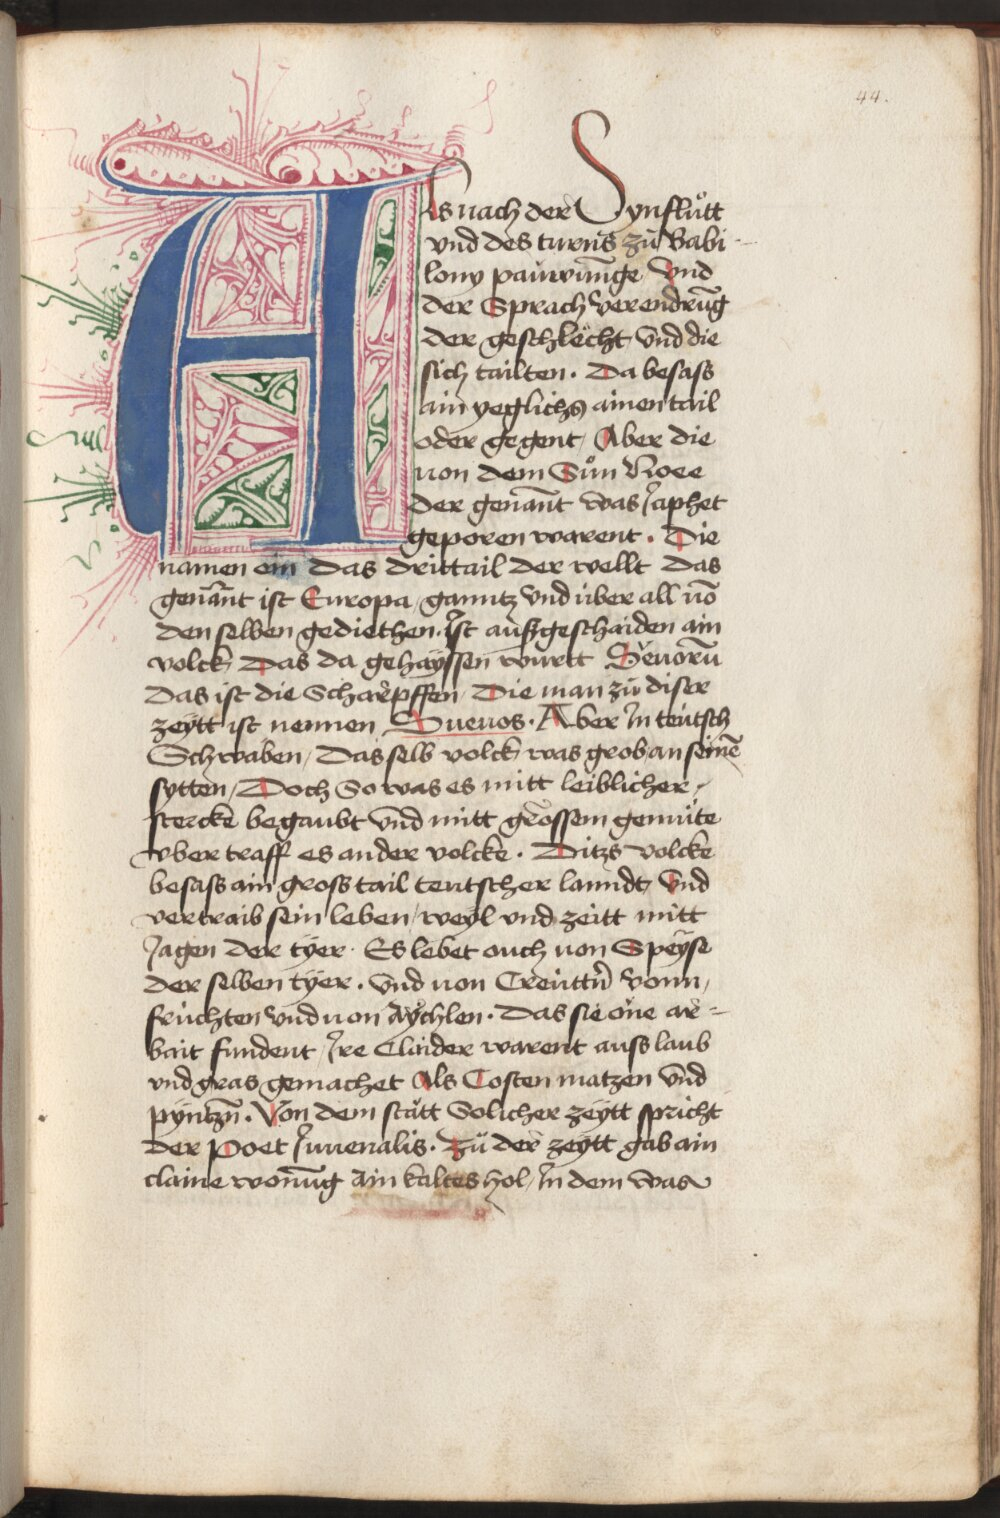 44.
Als nach der Synflůtt
vnd des turns zů Babi-
lony pauwunge vnd
der Sprach verendrūg
der geschlächt vnd die
sich tailten. Da besass
ain yeglichs ainen tail
oder gegent, Aber die
von dem Sůn Noee
der genānt was Japhet
geporen warent. Die
namen ein das drittail der wellt das
genānt ist Europa, ganntz vnd über all vō
den selben gediethen. Ist außgeschaiden ain
volck Das da gehayssen wurtt Sevorū
Das ist die Scharpffen, Die man zů diser
zeÿtt ist nennen Suevos. Aber Jn teütsch
Schwaben, Das selb volck was grob an seinē
sytten, Doch So was es mitt leiblicher,
stercke begaubt vnd mitt grossem gemüte
vber traff es ander volcke. Ditzs volcke
besass ain gross tail teutscher lanndt vnd
vertraib sein leben, weyl vnd zeitt mitt
Jagen der tÿer. Es lebet ouch von Speÿse
der selben tÿer. vnd von Creüttrn̄ vonn,
früchten vnd von Aÿchlen. Das sie one ar=
bait fundent, Jre Claider warent auss laub
vnd gras gemachet Als Costen matzen vnd
pyntzn̄. Von dem stätt Solicher zeÿtt spricht
der Poet Juuenalis. Zů der zeÿtt gab ain
claine wonūg Ain kaltes hol, Jn dem was